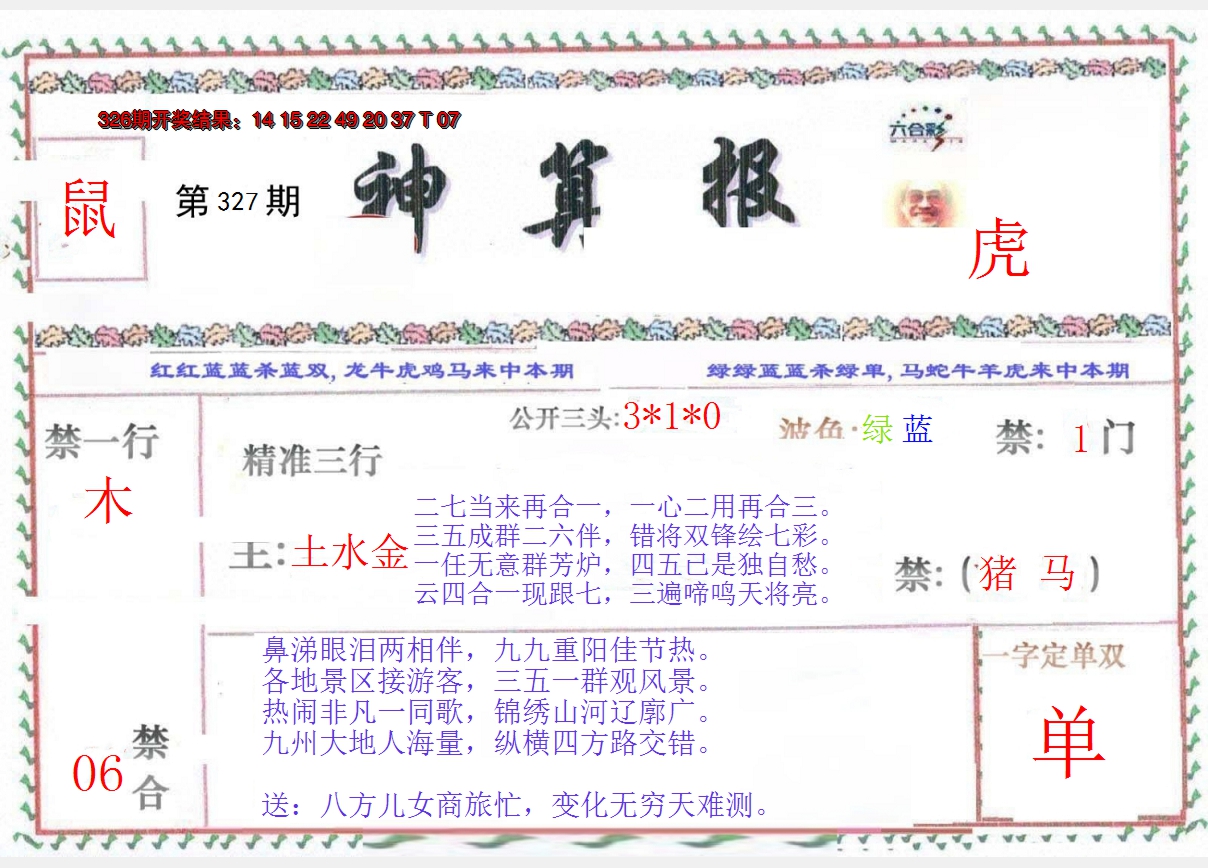 326期开奖结果：14 15 22 49 20 37 T 07
六合彩
鼠
第 327 期
神 算 报
虎
红红蓝蓝杀蓝双, 龙牛虎鸡马来中本期
绿绿蓝蓝杀绿单, 马蛇牛羊虎来中本期
公开三头:3*1*0
波色·绿 蓝
禁一行
禁: 1 门
木
精准三行
二七当来再合一，一心二用再合三。
三五成群二六伴，错将双锋绘七彩。
主:土水金
一任无意群芳炉，四五己是独自愁。
禁:(猪 马)
云四合一现跟七，三遍啼鸣天将亮。
鼻涕眼泪两相伴，九九重阳佳节热。
各地景区接游客，三五一群观风景。
热闹非凡一同歌，锦绣山河辽廓广。
九州大地人海量，纵横四方路交错。
送：八方儿女商旅忙，变化无穷天难测。
一字定单双
单
06
禁合